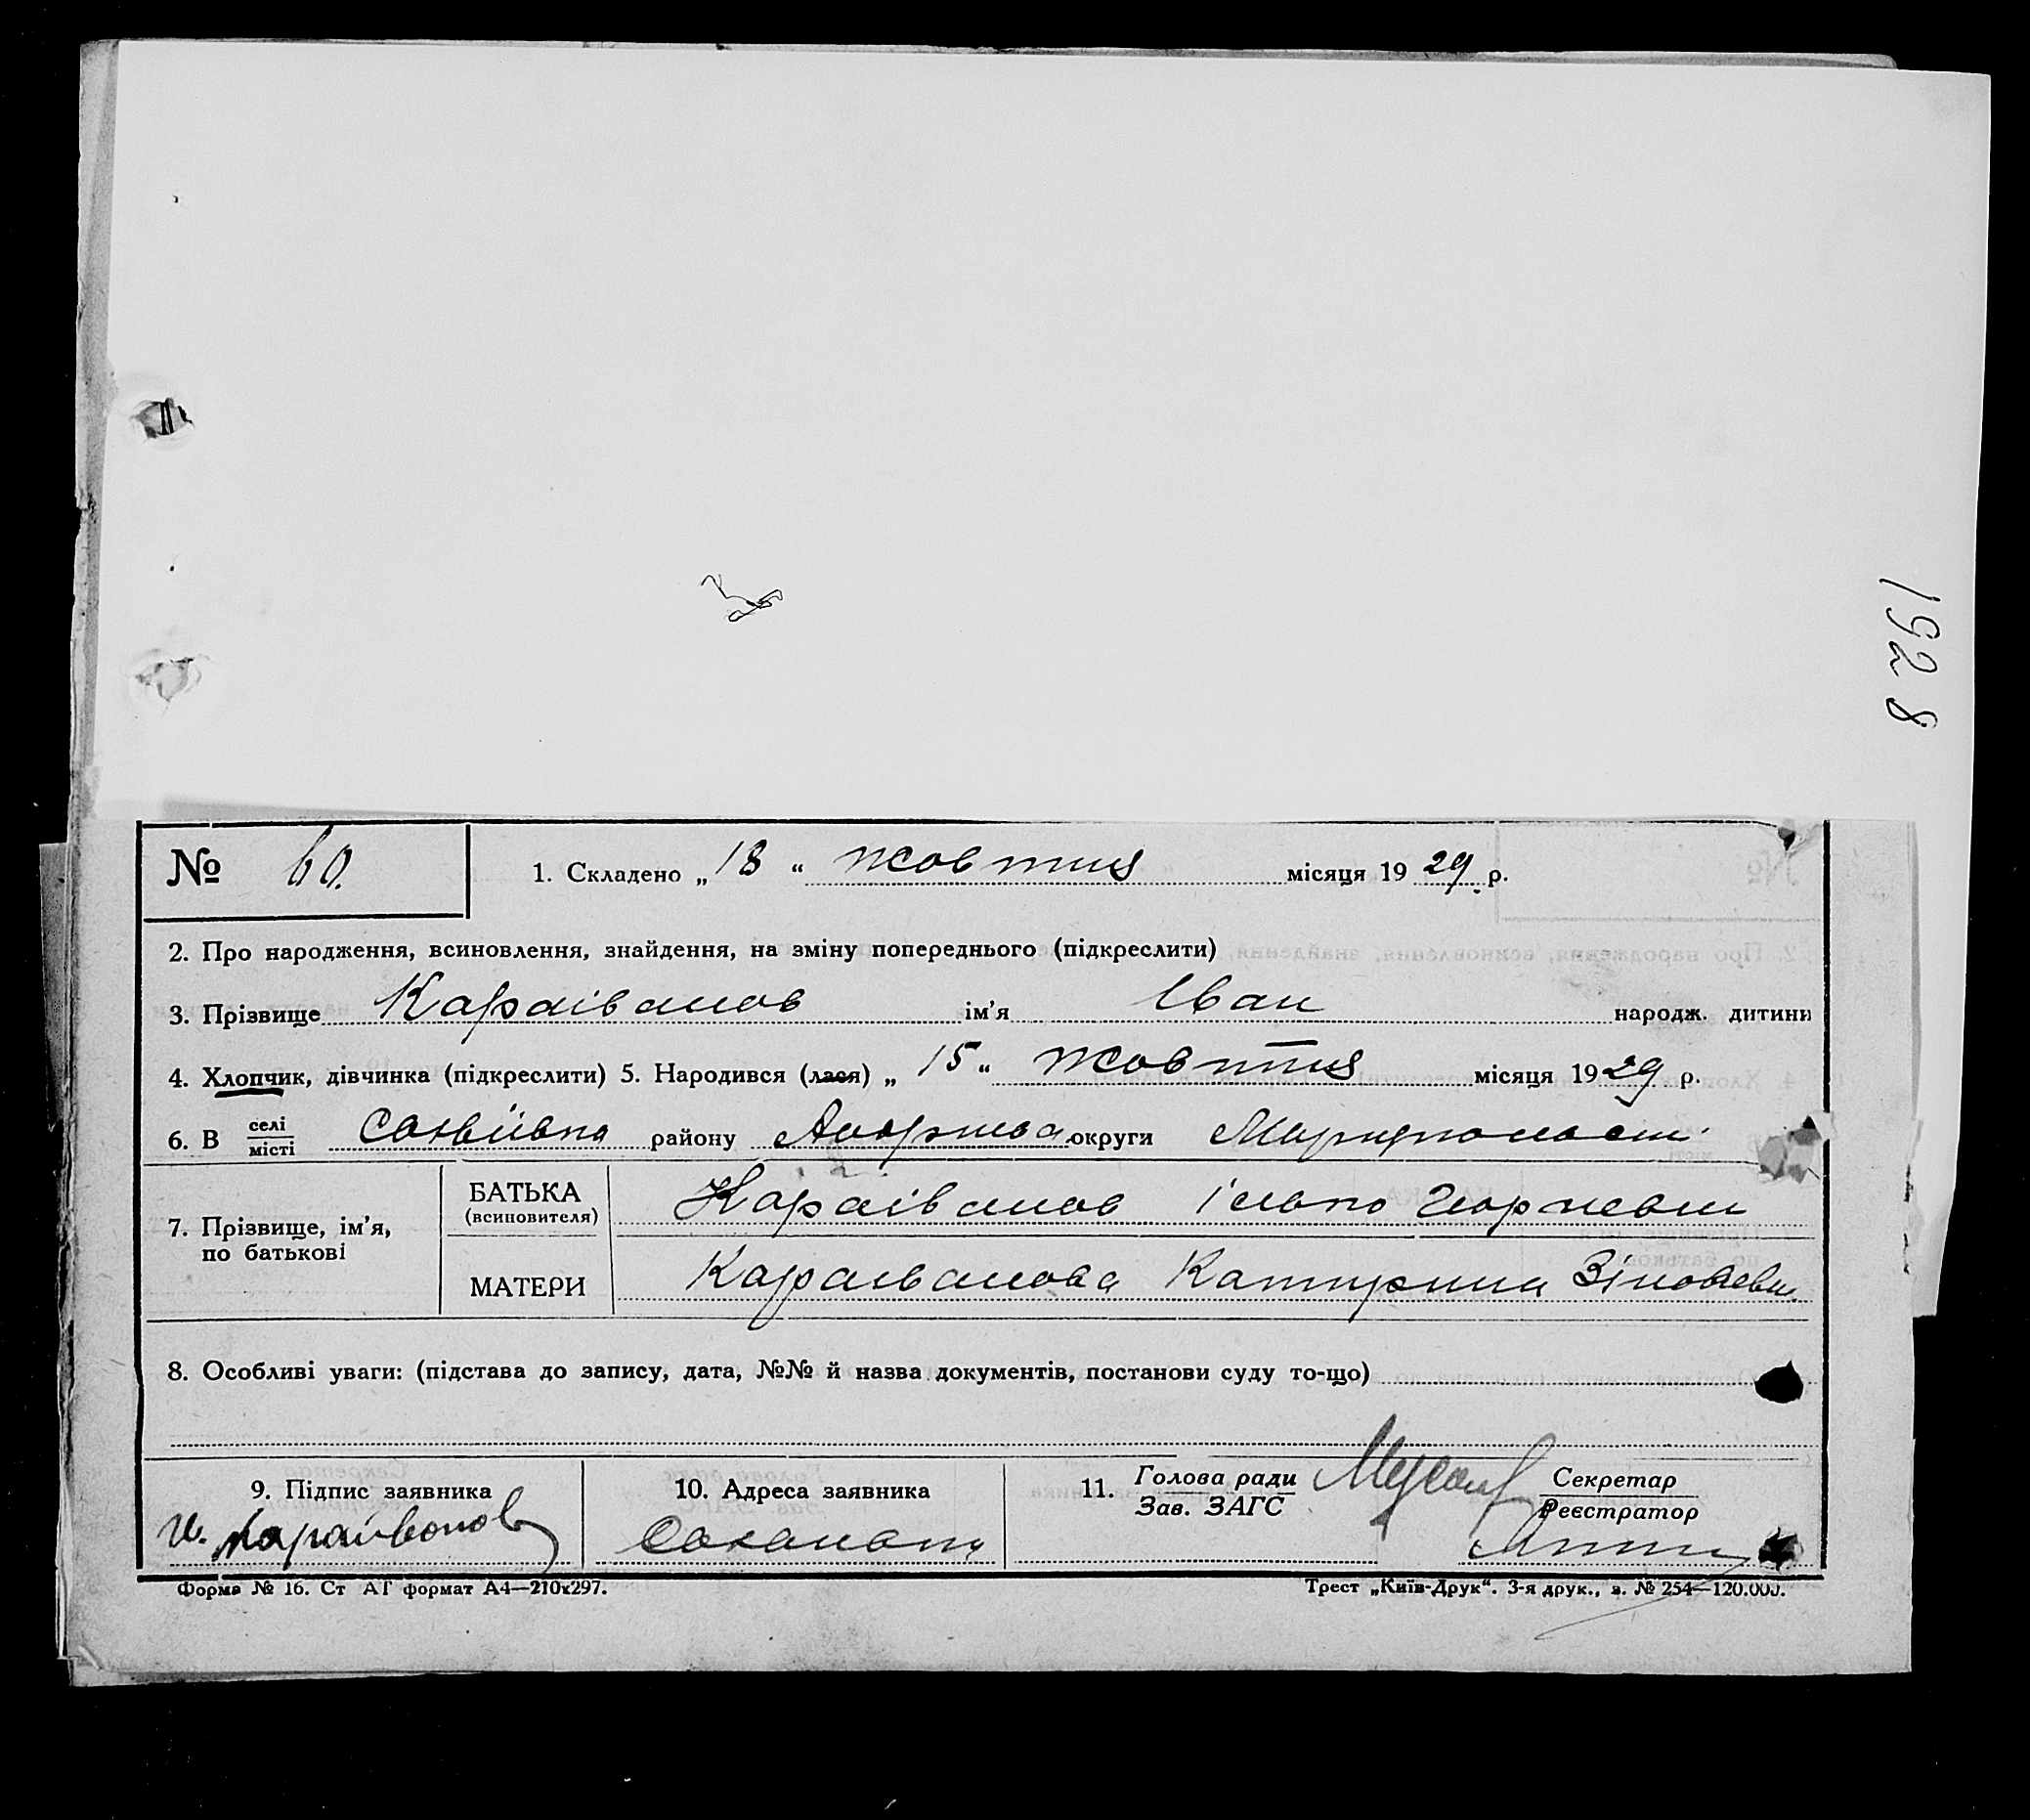 1928
№ 60.
1. Складено „ 18 “ жовтня місяця 19 29 р.
2. Про народження, всиновлення, знайдення, на зміну попереднього (підкреслити)
3. Прізвище Караіванов ім'я Іван народж. дитини
4. Хлопчик, дівчинка (підкреслити) 5. Народився (лася) „ 15 “ жовтня місяця 19 29 р.
6. В селі місті району округи
7. Прізвище, ім'я, по батькові
БАТЬКА (всиновителя) Караіванов
МАТЕРИ Караіванова Катирина
8. Особливі уваги: (підстава до запису, дата, №№ й назва документів, постанови суду то-що)
9. Підпис заявника
10. Адреса заявника
11. Голова ради Зав. ЗАГС
Секретар Реєстратор
Форма № 16. Ст АГ формат А4—210х297.
Трест „Київ-Друк“. 3-я друк., з. № 254—120.000.